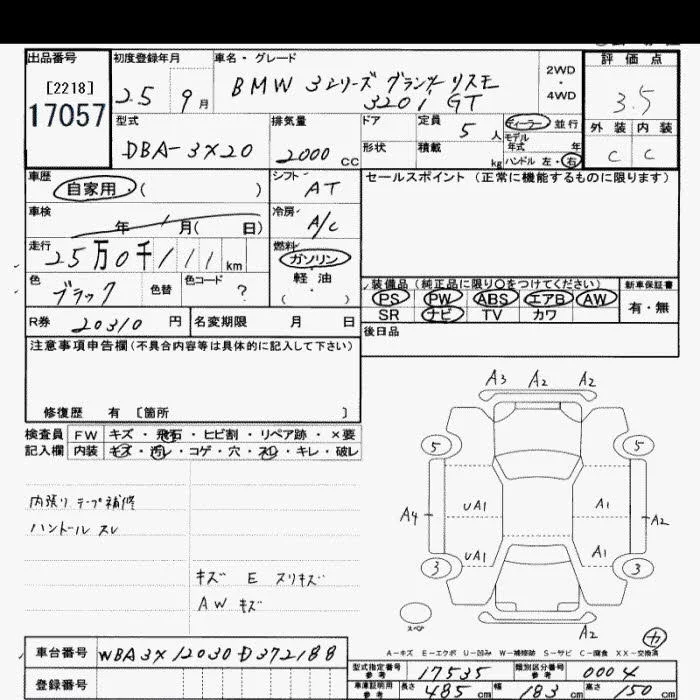 出品番号
[2218]
17057
初度登録年月
25 9月
車名・グレード
BMW 3シリーズ グランツーリスモ
320i GT
2WD
・
4WD
評価点
3.5
外装 内装
C C
型式
DBA-3X20
排気量
2000 CC
ドア
定員
5人
形状
積載
kg
ディーラー 並行
モデル
年式 年
ハンドル 左・右
車歴
自家用 ( )
シフト
AT
セールスポイント (正常に機能するものに限ります)
車検
年 月( 日)
冷房
A/C
走行
25万0千111km
燃料
ガソリン
軽油
( ・ )
色
ブラック
色替
色コード
?
装備品 (純正品に限り○をつけてください)
PS PW ABS エアB AW
SR ナビ TV カワ
新車保証書
有・無
R券 20310 円
名変期限 月 日
後日品
注意事項申告欄(不具合内容等は具体的に記入して下さい)
修復歴 有 [箇所 ]
検査員 FW キズ・飛石・ヒビ割・リペア跡・×要
記入欄 内装 キズ・汚レ・コゲ・穴・スレ・キレ・破レ
内張り テープ補修
ハンドル スレ
キズ E スリキズ
AW キズ
A3 A2 A2
5 5
UA1 A1
A4 A2
UA1 A1
3 3
スペア
A2
A-キズ E-エクボ U-凹み W-補修跡 S-サビ C-腐食 XX-交換済
車台番号 WBA3X12030D372188
登録番号
型式指定番号
参考
17535
類別区分番号
参考
0004
車庫証明用
参考
長さ 485 cm 幅 183 cm 高さ 150 cm